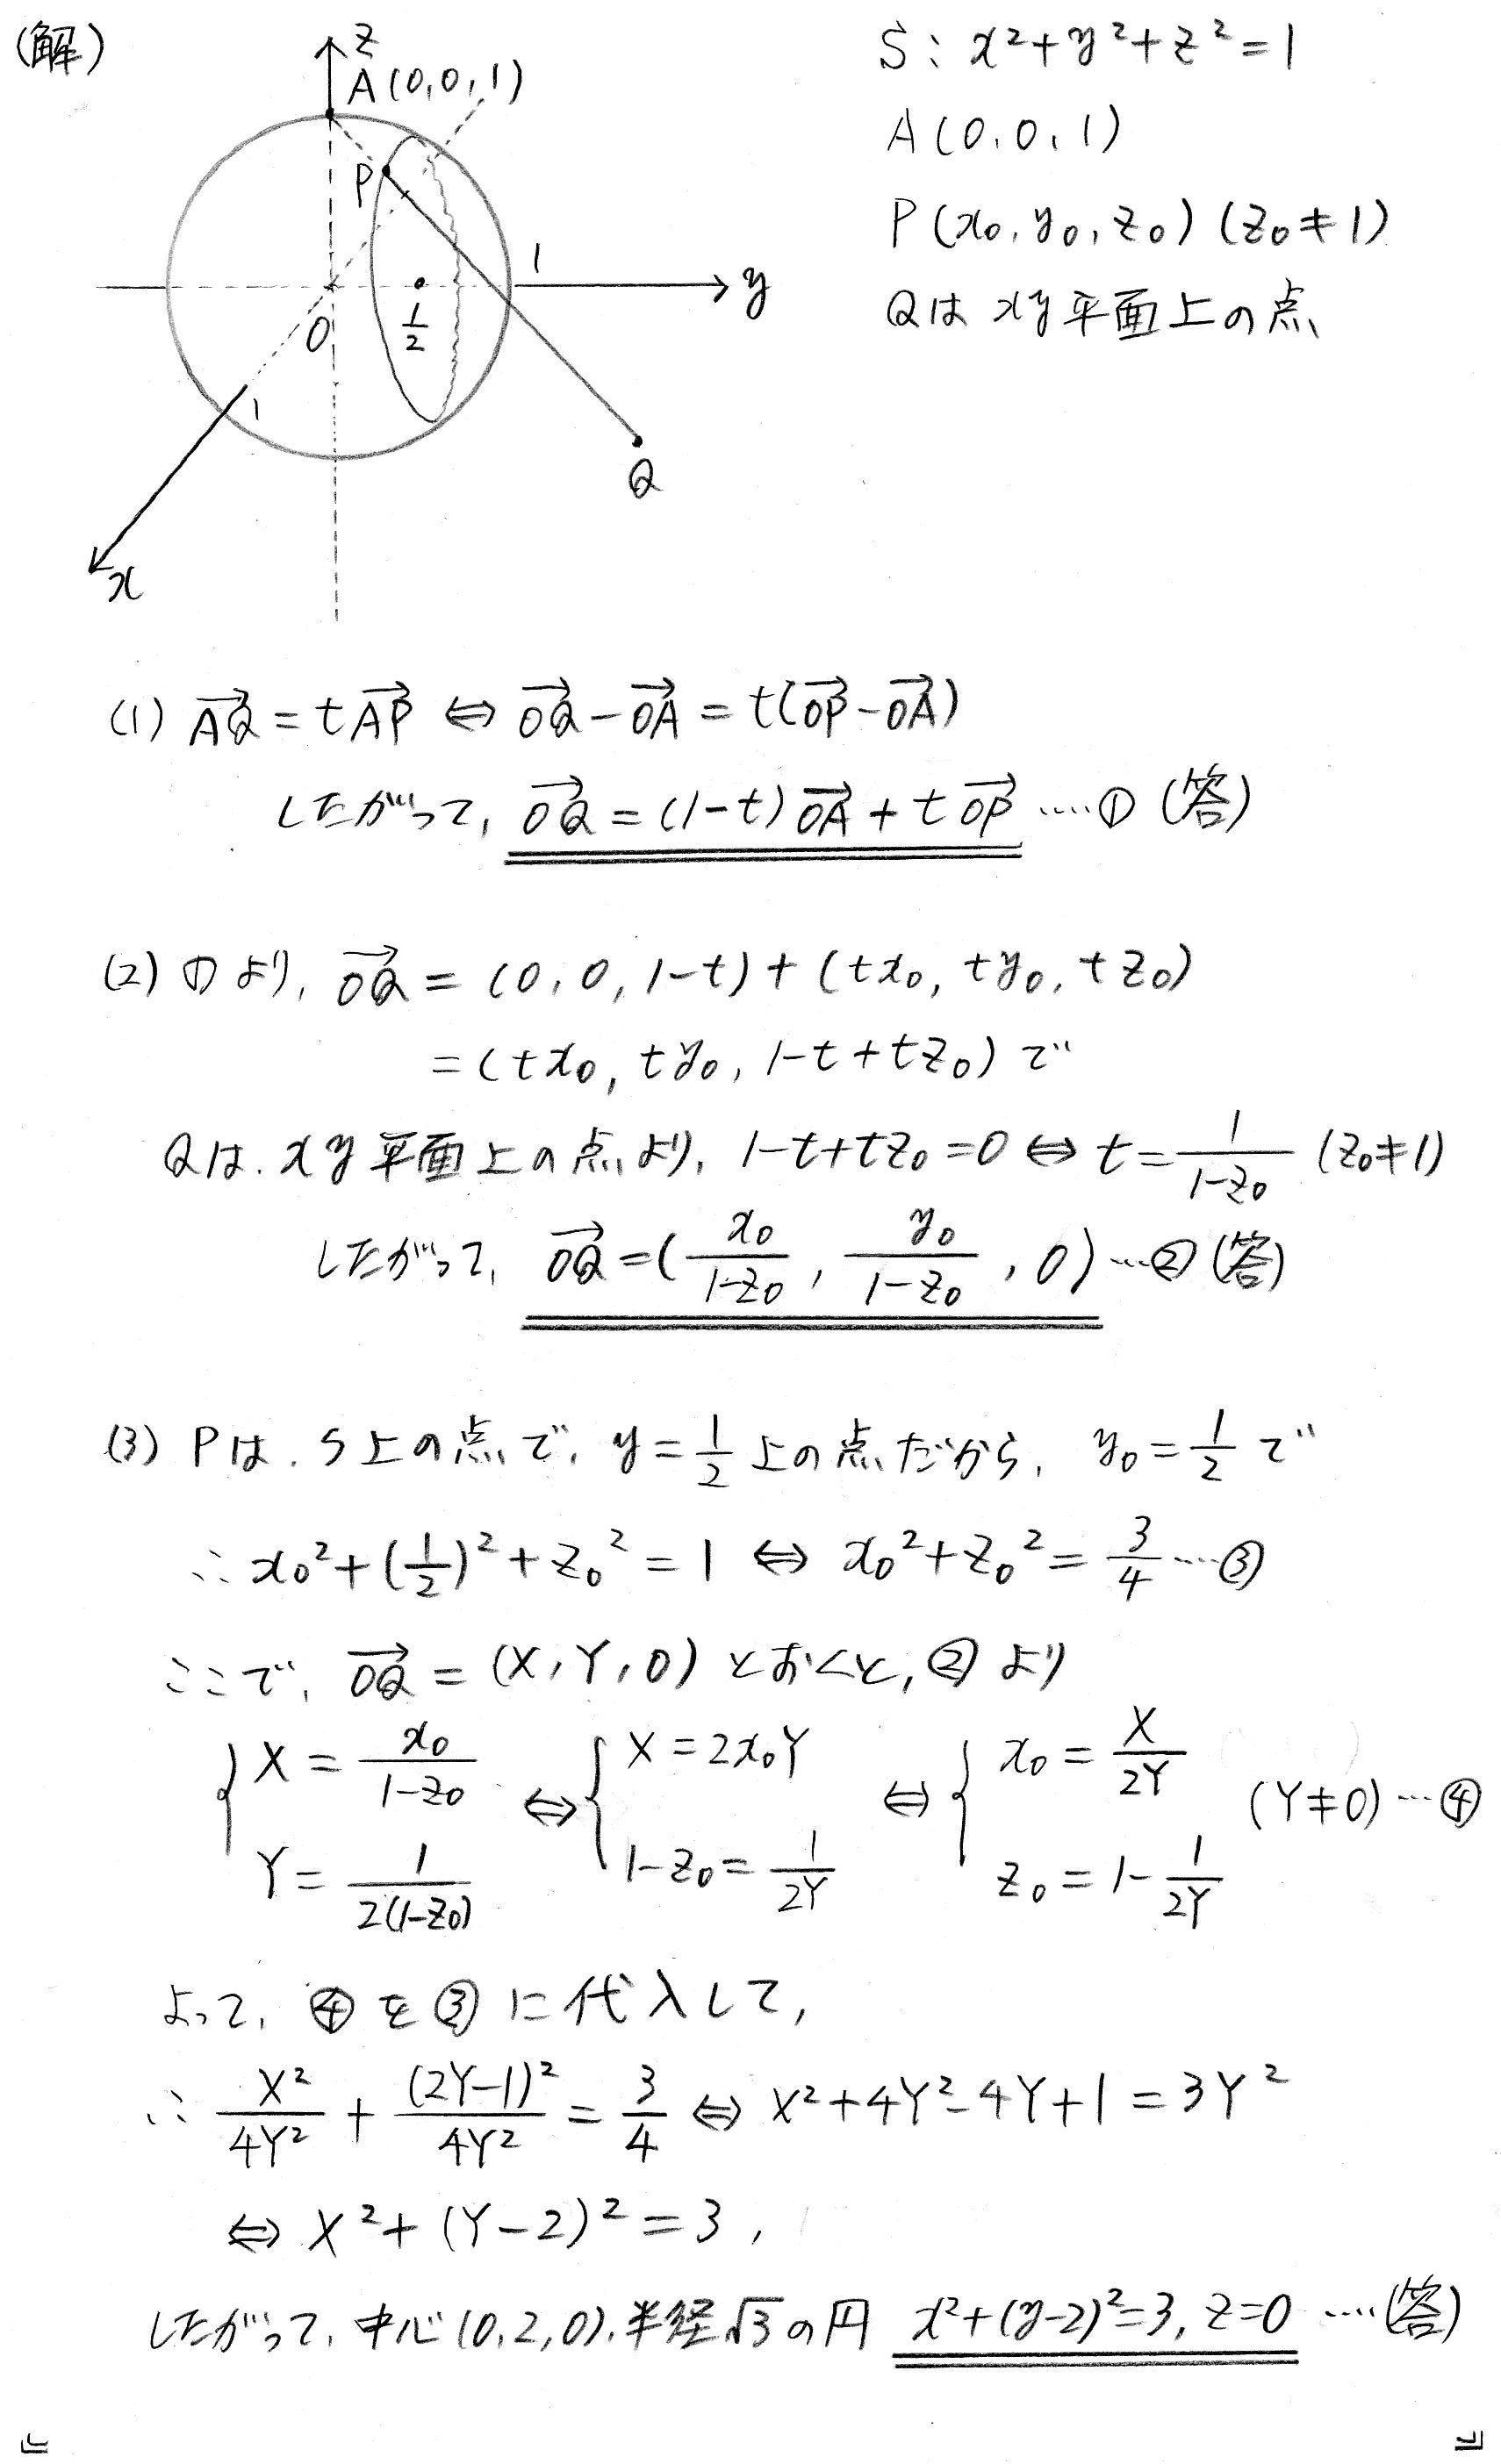 (解)
z
A(0,0,1)
P
1
y
0
1/2
1
Q
x
S : x²+y²+z²=1
A(0,0,1)
P(x₀, y₀, z₀) (z₀≠1)
Qは xy平面上の点
(1) AQ→ = tAP→ ⇔ OQ→ − OA→ = t(OP→ − OA→)
したがって, OQ→ = (1−t)OA→ + tOP→ ‥‥① (答)
(2) ①より, OQ→ = (0, 0, 1−t) + (tx₀, ty₀, tz₀)
= (tx₀, ty₀, 1−t+tz₀) で
Qは, xy平面上の点より, 1−t+tz₀=0 ⇔ t = 1/(1−z₀) (z₀≠1)
したがって, OQ→ = (x₀/(1−z₀), y₀/(1−z₀), 0) ‥‥② (答)
(3) Pは, S上の点で, y=1/2 上の点だから, y₀=1/2 で
∴ x₀²+(1/2)²+z₀² = 1 ⇔ x₀²+z₀² = 3/4 ‥‥③
ここで, OQ→ = (X, Y, 0) とおくと, ②より
{ X = x₀/(1−z₀) ⇔ { X = 2x₀Y ⇔ { x₀ = X/2Y (Y≠0) ‥‥④
Y = 1/(2(1−z₀)) 1−z₀ = 1/2Y z₀ = 1 − 1/2Y
よって, ④を③に代入して,
∴ X²/4Y² + (2Y−1)²/4Y² = 3/4 ⇔ X²+4Y²−4Y+1 = 3Y²
⇔ X²+(Y−2)² = 3,
したがって, 中心(0,2,0), 半径√3の円 x²+(y−2)²=3, z=0 ‥‥(答)